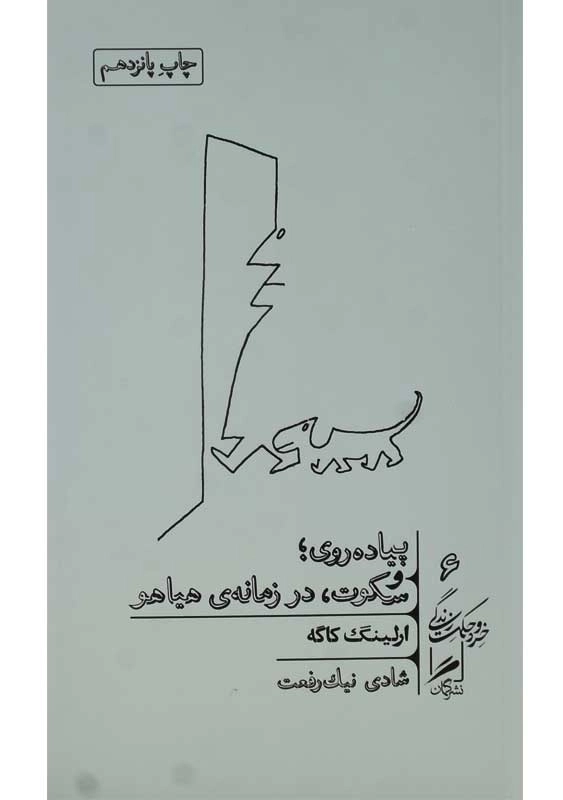 چاپِ پانزدهم
پیاده‌روی؛
و
سکوت، در زمانه‌ی هیاهو
ارلینگ کاگه
شادی نیک‌رفعت
۶
خرد و حکمت زندگی
نشر گمان